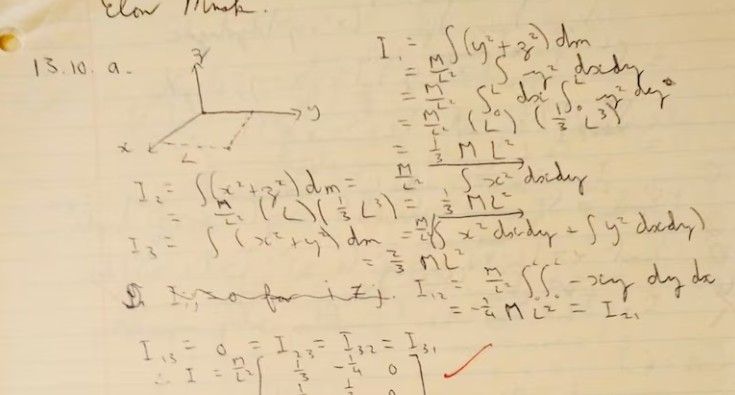 Elon Musk.
13.10. a.
z
y
x
L
I₁ = ∫(y²+z²) dm
= M/L² ∫ y² dxdy
= M/L² ∫₀ᴸ dx ∫₀ᴸ y² dy
= M/L² (L) (1/3 L³)
= 1/3 ML²
I₂ = ∫(x²+z²) dm = M/L² ∫ x² dxdy
= M/L² (L)(1/3 L³) = 1/3 ML²
I₃ = ∫(x²+y²) dm = M/L² (∫ x² dxdy + ∫ y² dxdy)
= 2/3 ML²
I₁₂ = M/L² ∫∫ -xy dy dx
= -1/4 ML² = I₂₁
I₁₃ = 0 = I₂₃ = I₃₂ = I₃₁
∴ I = M/L² [ 1/3 -1/4 0 ]